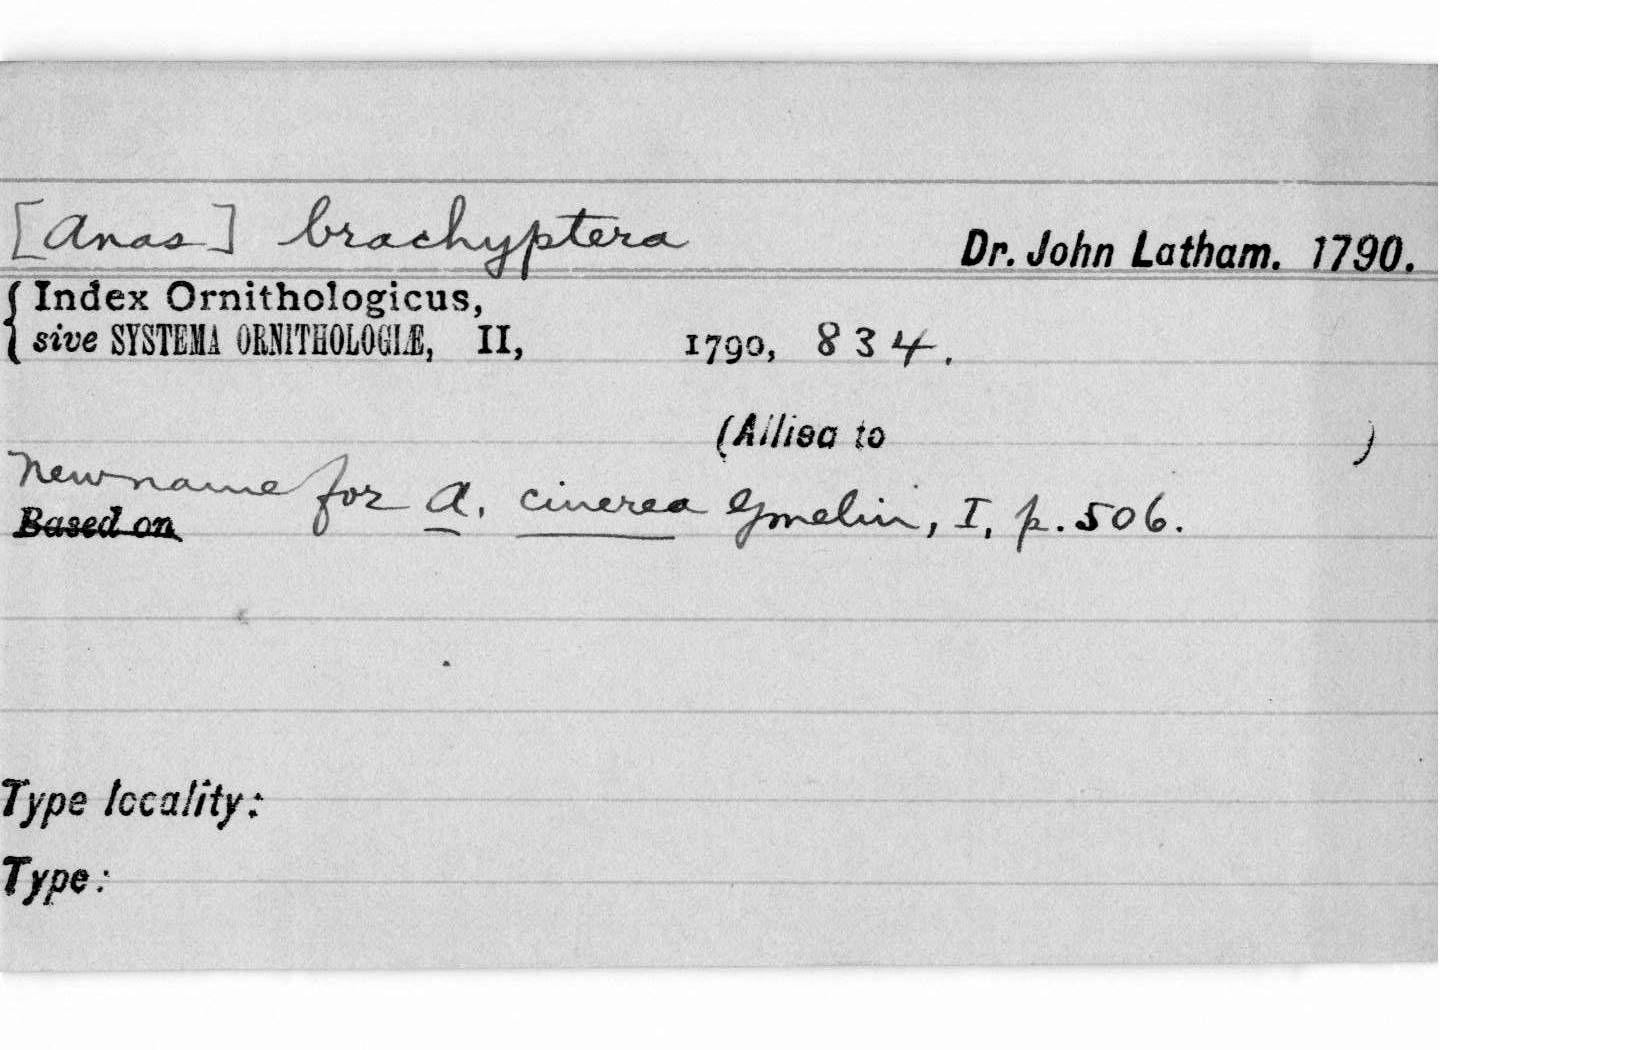 [Anas] brachyptera Dr. John Latham. 1790.
{ Index Ornithologicus,
sive SYSTEMA ORNITHOLOGIÆ, II, 1790, 834.
(Allied to )
New name for A. cinerea Gmelin, I, p. 506.
Based on
Type locality:
Type: